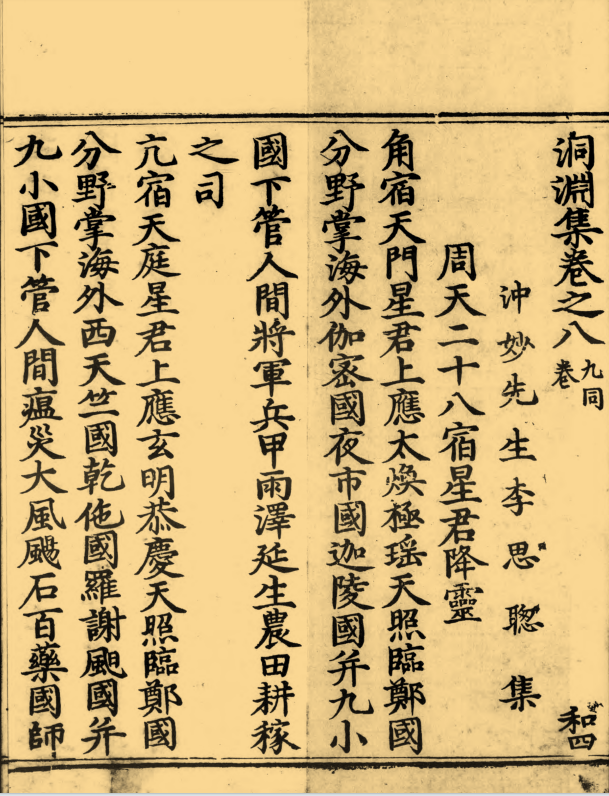 洞淵集卷之八 九同卷 和四
沖妙先生李思聰集
周天二十八宿星君降靈
角宿天門星君上應太煥極瑶天照臨鄭國
分野掌海外伽密國夜市國迦陵國并九小
國下管人間將軍兵甲雨澤延生農田耕稼
之司
亢宿天庭星君上應玄明恭慶天照臨鄭國
分野掌海外西天竺國乾佗國羅謝颰國并
九小國下管人間瘟災大風颺石百藥國師